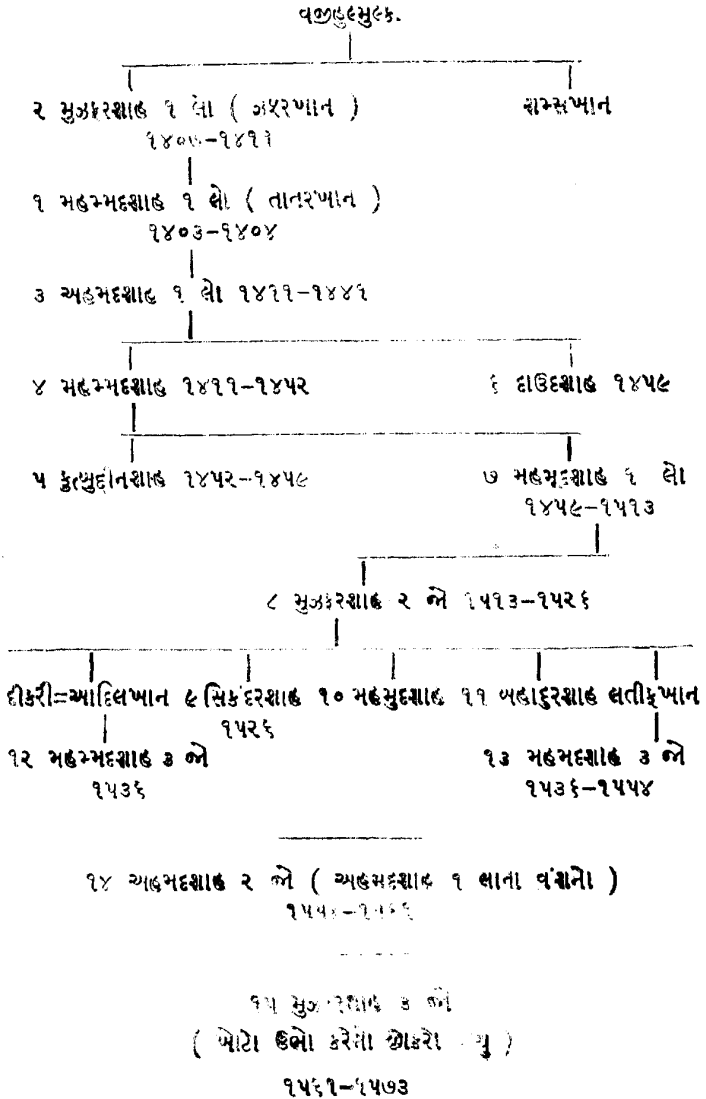 વજીહુલ્મુલ્ક.
૨ મુઝફરશાહ ૧ લો ( ઝફરખાન ) શમ્સખાન
૧૪૦૭-૧૪૧૧
૧ મહમ્મદશાહ ૧ લો ( તાતરખાન )
૧૪૦૩-૧૪૦૪
૩ અહમદશાહ ૧ લો ૧૪૧૧-૧૪૪૧
૪ મહમ્મદશાહ ૧૪૧૧-૧૪૫૨ ૬ દાઉદશાહ ૧૪૫૯
૫ કુત્બુદ્દીનશાહ ૧૪૫૨-૧૪૫૯ ૭ મહમૂદશાહ ૧ લો
૧૪૫૯-૧૫૧૩
૮ મુઝફરશાહ ૨ જો ૧૫૧૩-૧૫૨૬
દીકરી=આદિલખાન ૯ સિકંદરશાહ ૧૦ મહમુદશાહ ૧૧ બહાદુરશાહ લતીફખાન
૧૫૨૬
૧૨ મહમ્મદશાહ ૩ જો ૧૩ મહમદશાહ ૩ જો
૧૫૩૬ ૧૫૩૬-૧૫૫૪
૧૪ અહમદશાહ ૨ જો ( અહમદશાહ ૧ લાના વંશનો )
૧૫ ૩ જો
( ખોટો ઉભો કરેલો છોકરો )
૧૫૬૧-૧૫૭૩